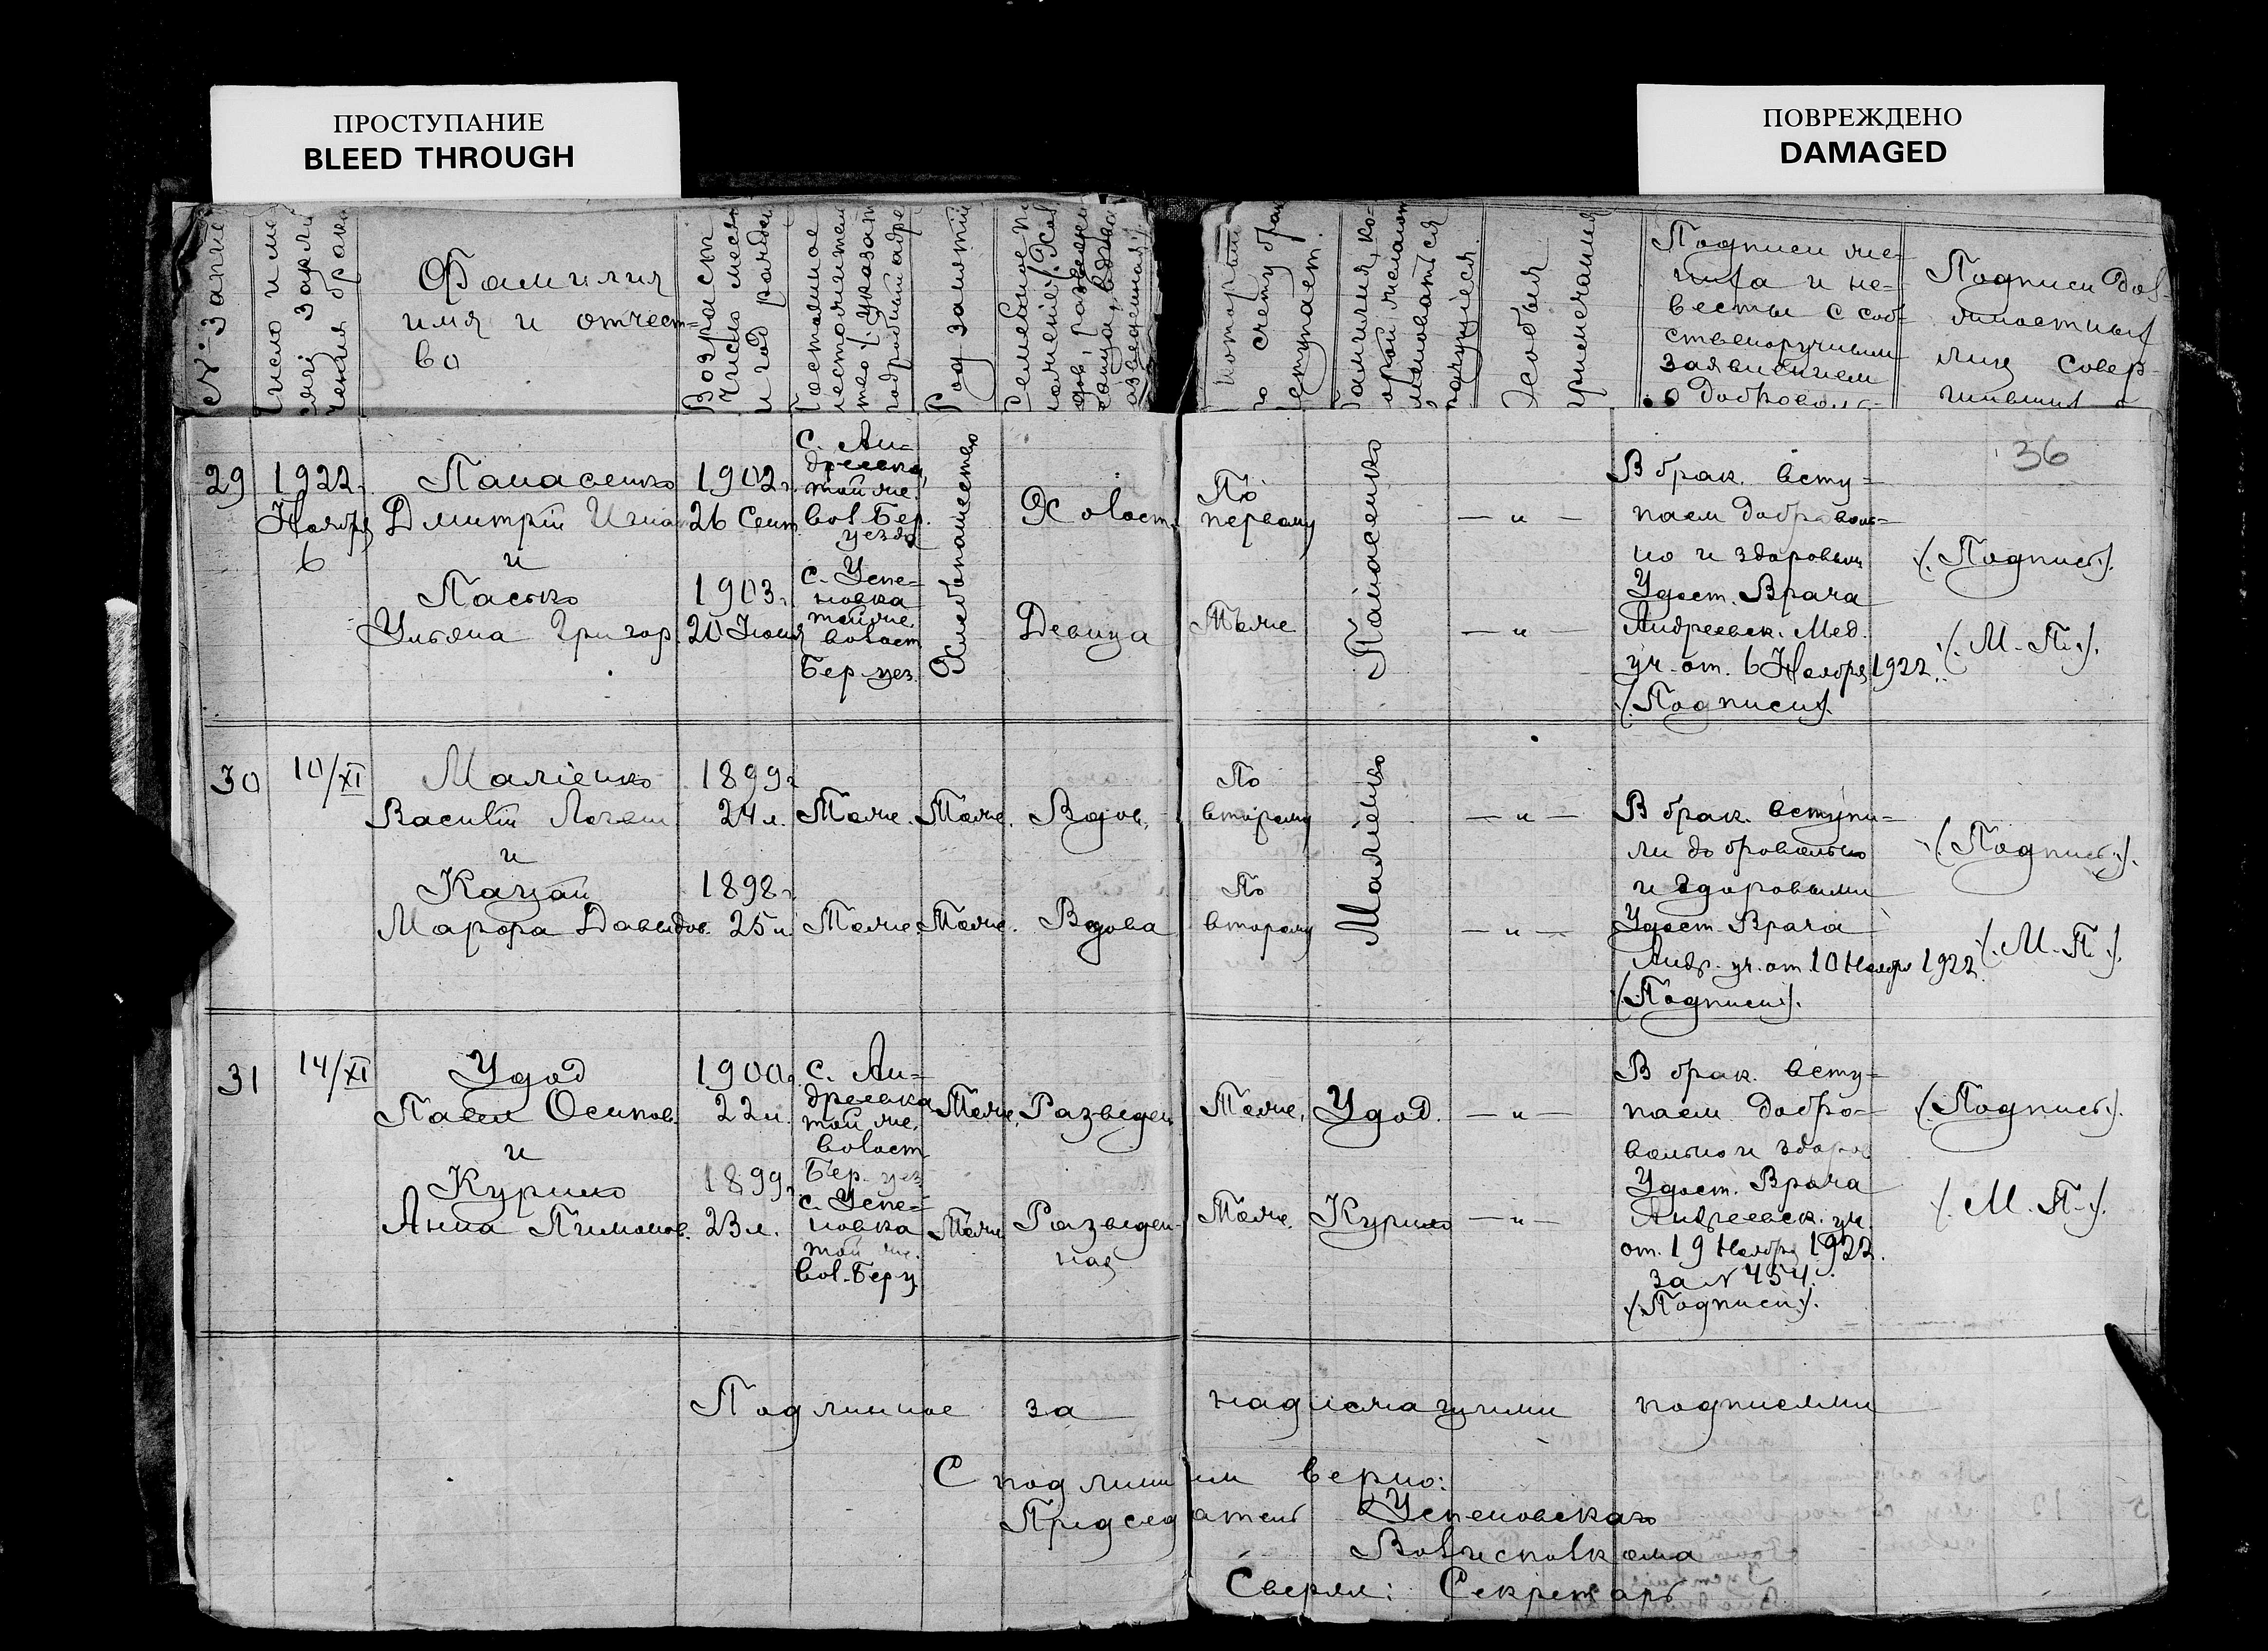 ПРОСТУПАНИЕ
BLEED THROUGH
ПОВРЕЖДЕНО
DAMAGED
Фамилия
имя и отчест-
во
Возраст
число меся
и год рожден
Род занятий
Особыя
примечания
Подписи же-
ниха и не-
весты с соб-
ственоручным
заявлением
о доброволь-
Подписи дол-
жностных
лиц совер-
шивших
36
29
1922
Ноября
6
Панасенко
Дмитрий Игна
и
Пасько
Ульяна Григор.
1902 г.
26 Сент
1903 г.
20 Июня
с. Ан-
дреевка
той же
вол Бер.
уезда
с. Успе-
новка
той же
воласт
Бер уез.
Хлебопашество
Холост.
Девица
По
первому
Тоже
Панасенко
— " —
— " —
В брак всту-
паем добраволь-
но и здоровым
Удост. Врача
Андреевск. Мед.
уч. от. 6 Ноября 1922.
(Подписи).
(Подпись).
(М. П.).
30
10/XI
Маліенко
Василій Логвин
и
Кацай
Марфа Давидов.
1899 г
24 л.
1898 г
25 л
Тоже.
Тоже.
Тоже.
Тоже.
Вдов.
Вдова
По
второму
По
второму
Маліенко
— " —
— " —
В брак вступи-
ли добровольно
и здоровыми
Удост. Врача
Андр. уч. от 10 Ноября 1922
(Подписи).
(Подпись).
(М. П.).
31
14/XI
Удод
Павел Осипов.
и
Курило
Анна Пимонов.
1900 г.
22 л.
1899 г.
23 л.
с. Ан-
дреевка
той же
воласт
Бер. уез
с. Успе-
новка
той же.
вол. Бер у.
Тоже.
Тоже
Разведен
Разведен-
ная
Тоже.
Тоже.
Удод.
Курило
— " —
— " —
В брак всту-
паем добро-
вольно и здоров
Удост. Врача
Андреевск. уч.
от. 19 Ноября 1922.
за N 454.
(Подписи).
(Подпись).
(М. П.).
Подлинное за надлежащими подписями
С подлинным верно:
Председатель Успеновскаго
Волисполкома
Сверял: Секретарь